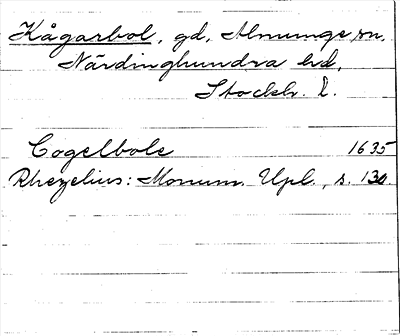 Kågarbol, gd, Almunge sn,
Närdinghundra hd,
Stockh. l.
Cogelbole 1635
Rhezelius: Monum. Upl., s. 130.